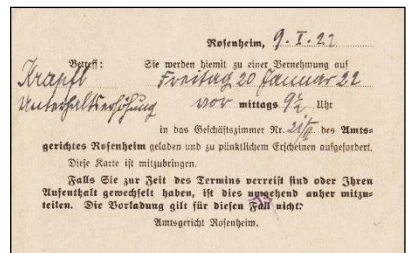 Rosenheim, 9. I. 22
Betreff: Sie werden hiemit zu einer Vernehmung auf
Krapfl Freitag 20 Januar 22
Unterhaltserhöhung vor mittags 9½ Uhr
in das Geschäftszimmer Nr. des Amts-
gerichtes Rosenheim geladen und zu pünktlichem Erscheinen aufgefordert.
Diese Karte ist mitzubringen.
Falls Sie zur Zeit des Termins verreist sind oder Ihren
Aufenthalt gewechselt haben, ist dies umgehend anher mitzu-
teilen. Die Vorladung gilt für diesen Fall nicht.
Amtsgericht Rosenheim.